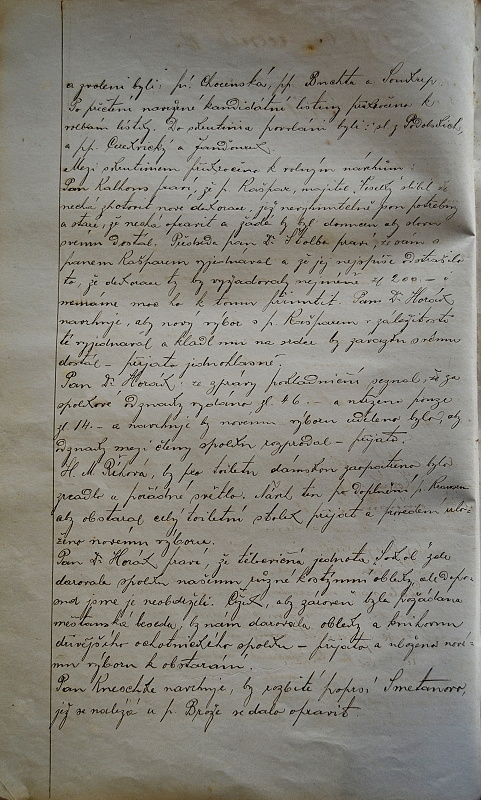 a zvoleni byli: pí. Chocenská, pp. Buchta a Soukup
Po přečtení navržené kandidátní listiny přikročeno k
volbám lístky. Do skrutinia povoláni byli: sl.
a pp. a Žandourek.
Mezi skrutiniem přikročeno k volným návrhům:
Pan praví, že p. Kašpar, majitel slíbil že
nechá zhotovit nové dekorace, jež nevyhnutelně jsou potřebny
a staré, že nechá opravit a žádá by byl donucen aby slovu
svému dostál. Předseda pan Dr Štolba praví, že sám s
panem Kašparem vyjednával a že jej nejspíše odstrašilo
to, že dekorace ty by vyžadovaly nejméně zl 200 – a
nemáme moc ho k tomu přinutit. Pan Dr Horák
navrhuje, aby nový výbor s p. Kašparem v záležitosti
té vyjednával a kladl mu na srdce by závazku svému
dostál – přijato jednohlasně.
Pan Dr Horák ze zprávy pokladniční seznal, že za
spolkové odznaky vydáno zl. 46. – a utrženo pouze
zl. 14. – a navrhuje by novému výboru uděleno bylo, aby
odznaky mezi členy spolku rozprodal – přijato.
H. M. Řehová, by pro toiletu dámskou zaopatřeno bylo
zrcadlo a pořádné světlo. Návrh ten po doplnění p.
aby obstaral celý toiletní stolek přijat a provedení ulo-
ženo novému výboru.
Pan Dr Horák praví, že tělocvičná jednota Sokol zde
darovala spolku našemu různé kostýmní obleky, ale dopo-
sud jsme je neobdrželi. aby zároveň byla požádána
měšťanská beseda, by nám darovala obleky a knihovnu
dřívějšího ochotnického spolku – přijato a uloženo nové-
mu výboru k obstarání.
Pan Kneschke navrhuje, by rozbité poprsí Smetanovo,
jež se nalézá u p. Brože se dalo opravit